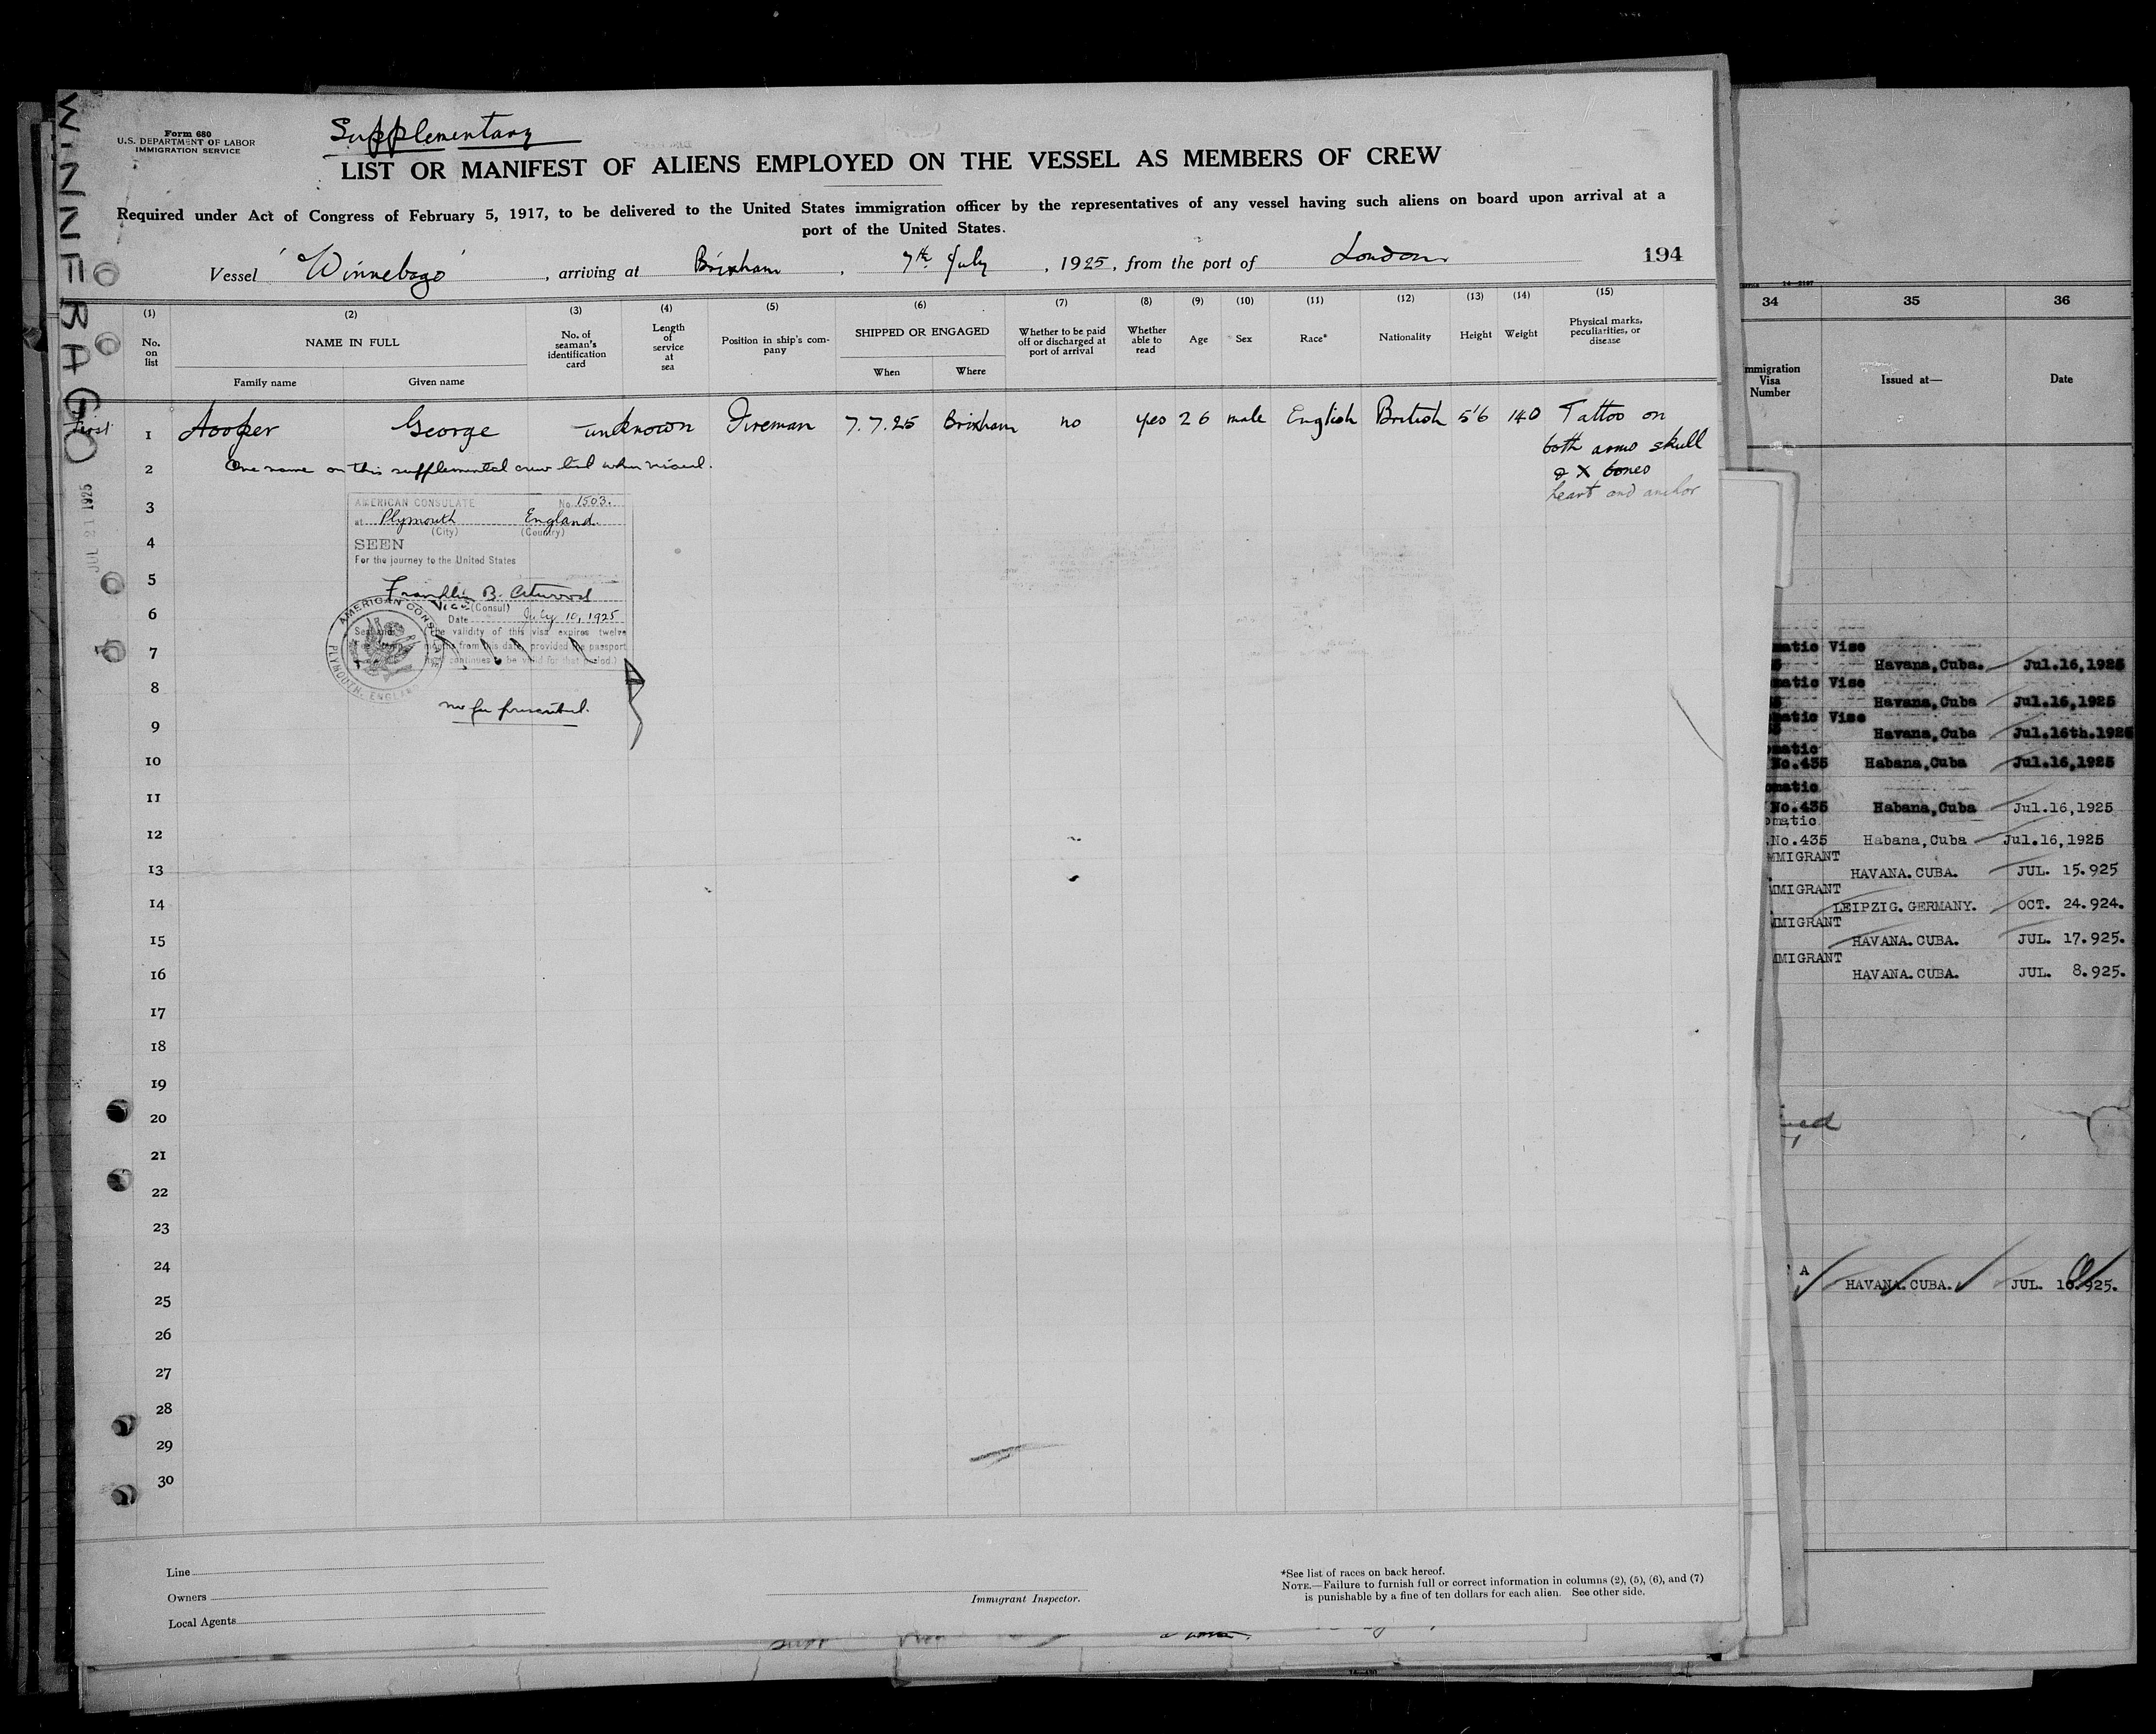 WINNEBAGO
JUL 21 1925
Form 680
U.S. DEPARTMENT OF LABOR
IMMIGRATION SERVICE
Supplementary
LIST OR MANIFEST OF ALIENS EMPLOYED ON THE VESSEL AS MEMBERS OF CREW
Required under Act of Congress of February 5, 1917, to be delivered to the United States immigration officer by the representatives of any vessel having such aliens on board upon arrival at a
port of the United States.
Vessel 'Winnebago', arriving at Brixham, 7th July, 1925, from the port of London 194
(1) (2) (3) (4) (5) (6) (7) (8) (9) (10) (11) (12) (13) (14) (15)
No. on list
NAME IN FULL
Family name Given name
No. of seaman's identification card
Length of service at sea
Position in ship's com-
pany
SHIPPED OR ENGAGED
When Where
Whether to be paid off or discharged at port of arrival
Whether able to read
Age
Sex
Race*
Nationality
Height
Weight
Physical marks, peculiarities, or disease
First
1 Hooper George unknown Fireman 7.7.25 Brixham no yes 26 male English British 5'6 140 Tattoo on
both arms skull
& X bones
heart and anchor
2 One name on this supplemental crew list when visaed.
3
4
5
6
7
8
9
10
11
12
13
14
15
16
17
18
19
20
21
22
23
24
25
26
27
28
29
30
AMERICAN CONSULATE No. 1503.
at Plymouth England.
(City) (Country)
SEEN
For the journey to the United States
Franklin B. Atwood
Vice (Consul)
Date July 10, 1925
(The validity of this visa expires twelve
months from this date, provided the passport
continues to be valid for that period.)
AMERICAN CONSULATE
PLYMOUTH, ENGLAND
no fee prescribed.
Line
Owners
Local Agents
Immigrant Inspector.
*See list of races on back hereof.
NOTE.—Failure to furnish full or correct information in columns (2), (5), (6), and (7)
is punishable by a fine of ten dollars for each alien. See other side.
34 35 36
mmigration
Visa
Number
Issued at—
Date
matic Vise
Havana,Cuba. Jul.16,1925
matic Vise
Havana,Cuba Jul.16,1925
matic Vise
Havana,Cuba Jul.16th.1925
matic
No.435 Habana,Cuba Jul.16,1925
omatic
No.435 Habana,Cuba Jul.16,1925
omatic
.No.435 Habana,Cuba Jul.16,1925
MMIGRANT
HAVANA.CUBA. JUL. 15.925
MMIGRANT
LEIPZIG.GERMANY. OCT. 24.924.
MMIGRANT
HAVANA.CUBA. JUL. 17.925.
MMIGRANT
HAVANA.CUBA. JUL. 8.925.
A
HAVANA.CUBA. JUL. 10.925.